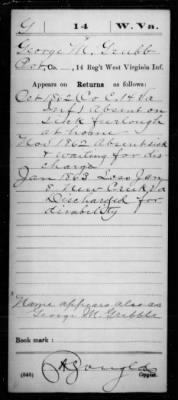 G 14 W. Va.
George M. Grubb
Pvt, Co. , 14 Reg't West Virginia Inf.
Appears on Returns as follows:
Oct 1862 (Co C. 14 Va
Inf) Absent on
sick furlough
at home
Nov 1862 Absent sick
& waiting for dis
charge
Jan 1863 Loss Jan
8 New Creek Va
Discharged for
disability
Name appears also as
George M. Gribble
Book mark:
(646) Copyist.